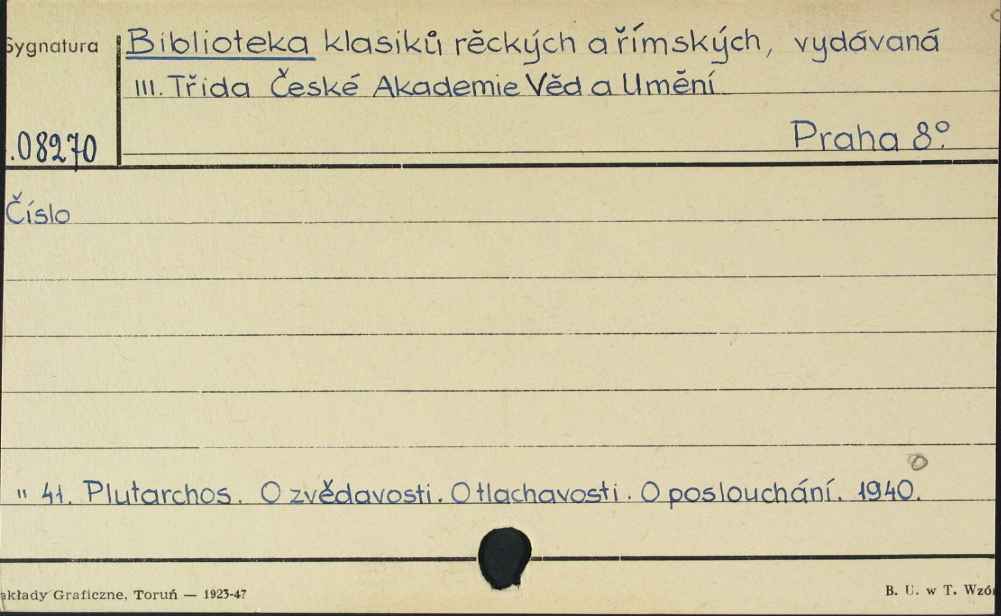 Sygnatura
Biblioteka klasiků rěckých a římských, vydávaná
III. Třida České Akademie Věd a Umění
.08270
Praha 8°.
Číslo
" 41. Plutarchos. O zvědavosti. O tlachavosti. O poslouchání. 1940.
akłady Graficzne, Toruń — 1923-47
B. U. w T. Wzór